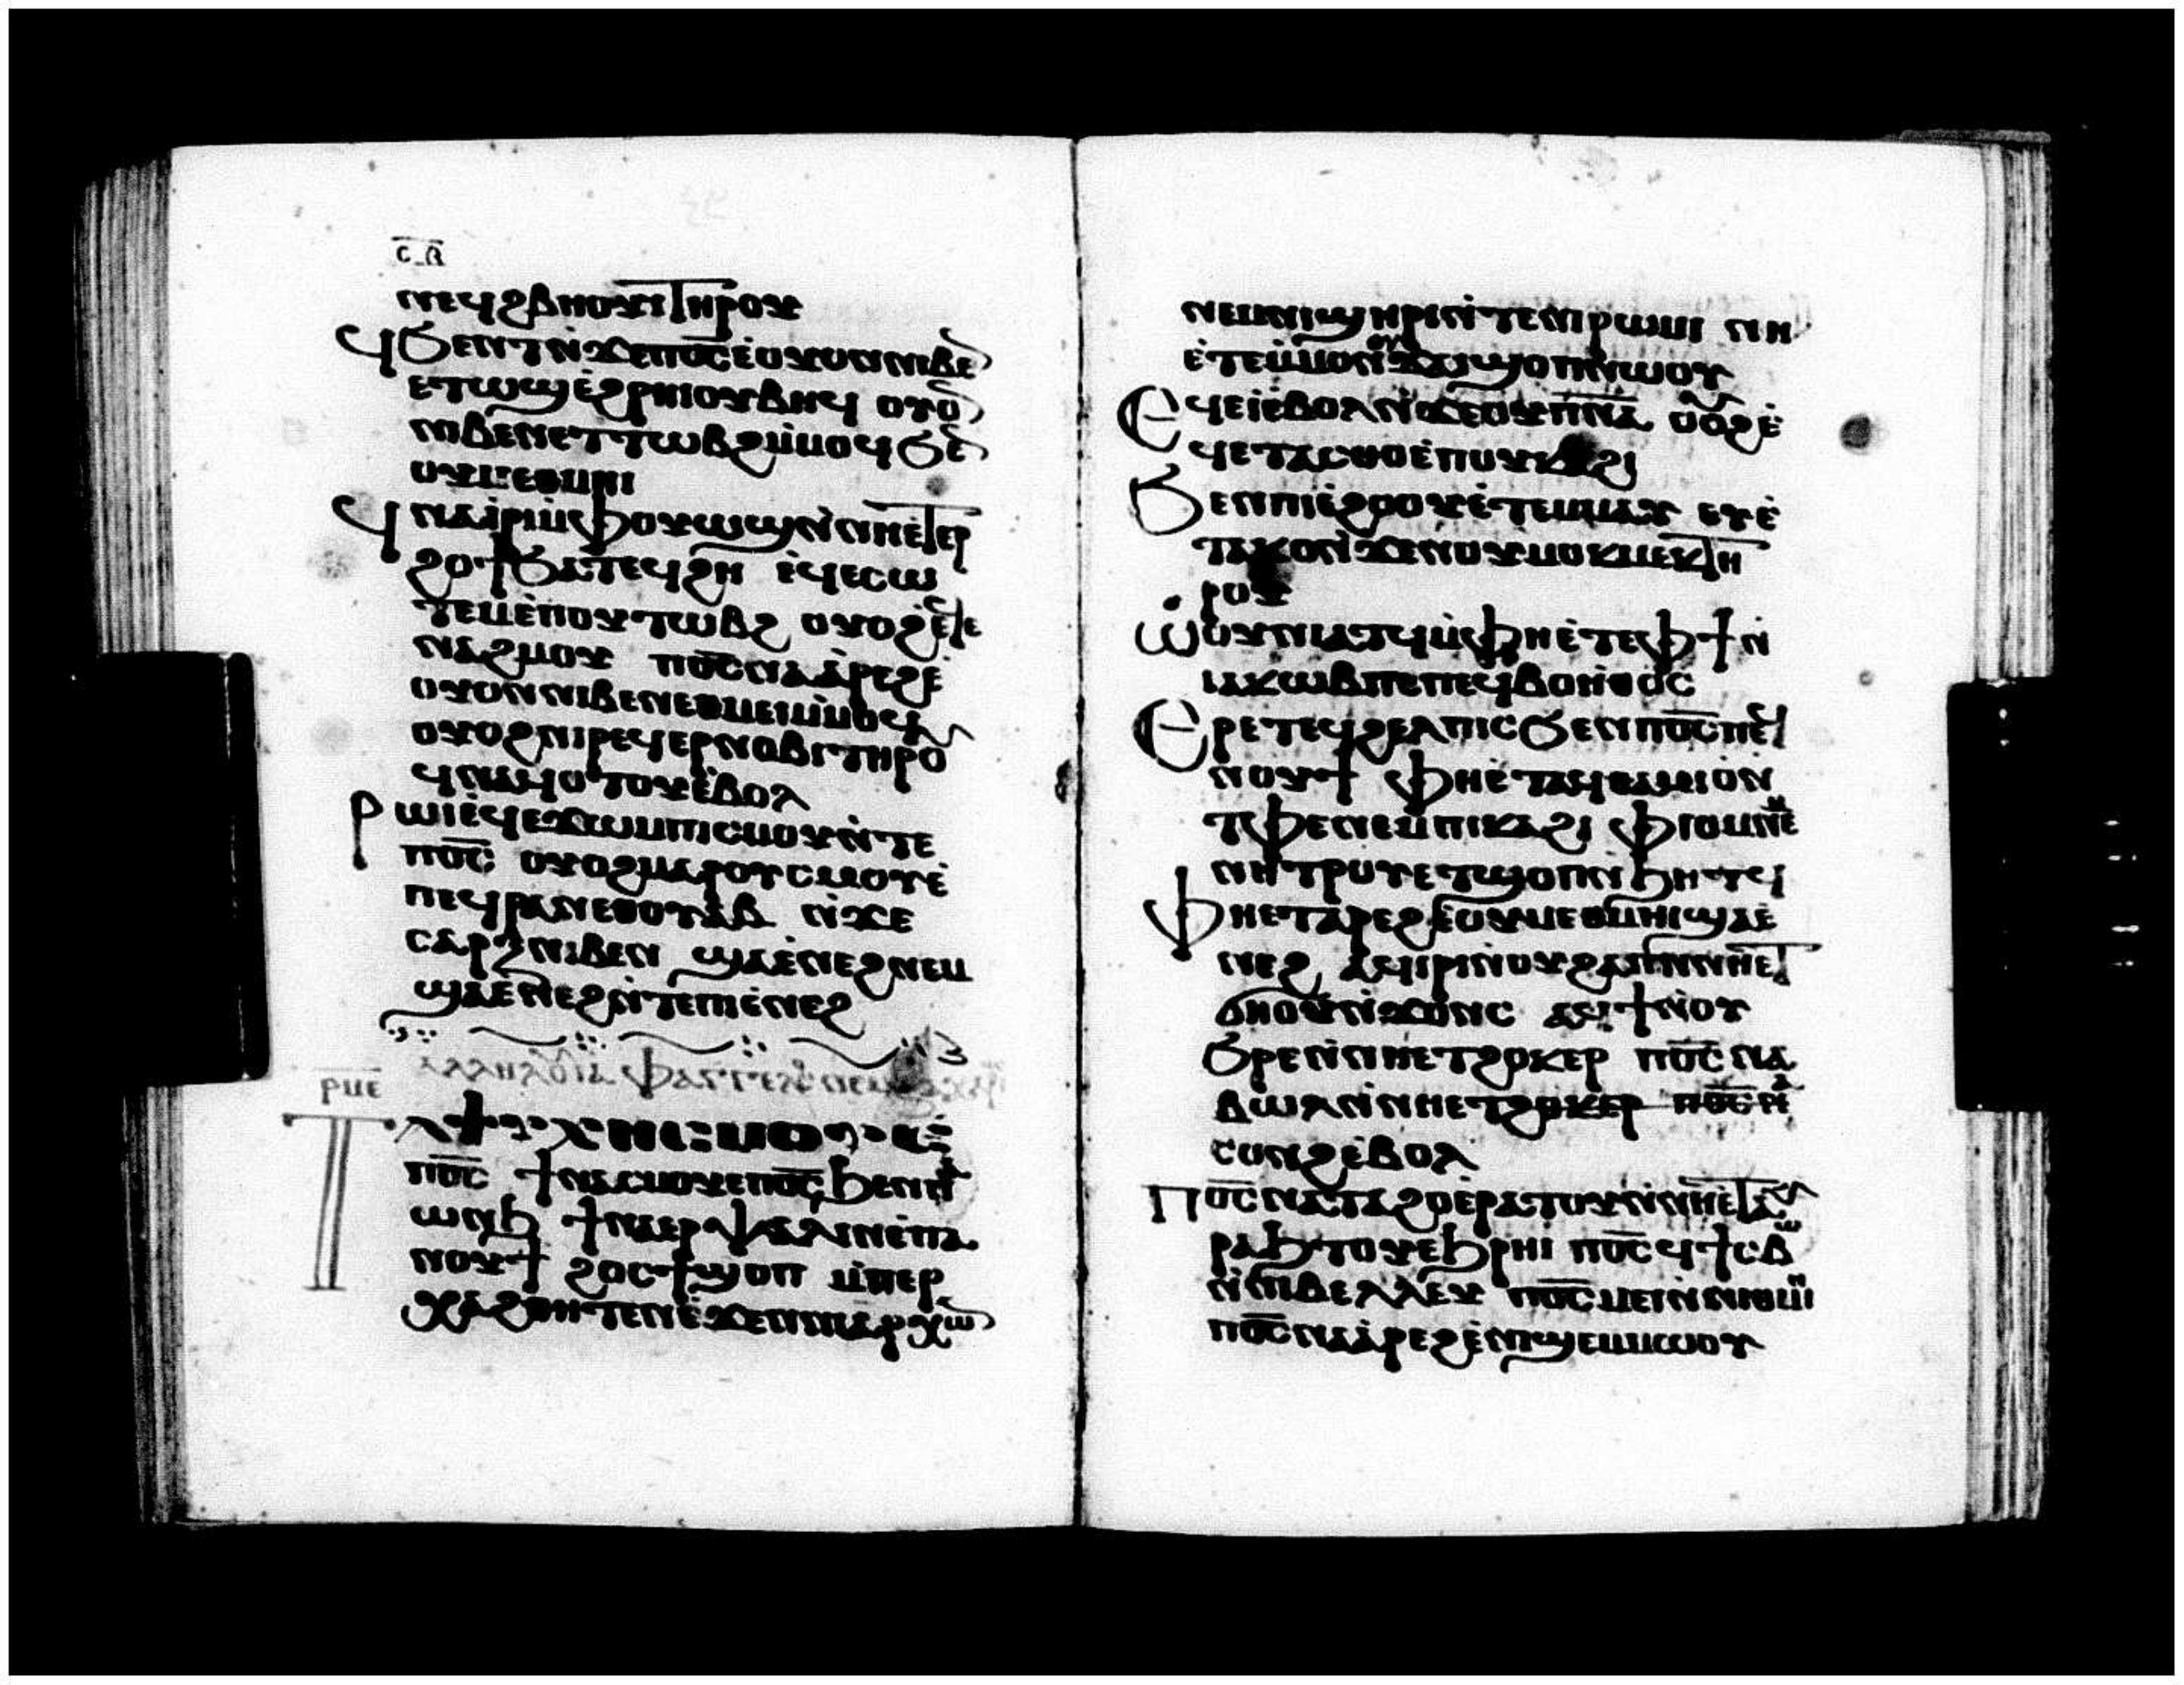 ⲥ̅ⲃ̅
ⲛⲉϥϩⲃⲏⲟⲩⲓ ⲧⲏⲣⲟⲩ
ϥϧⲉⲛⲧ ⲛ̀ϫⲉⲡⲟ̅ⲥ̅ ⲉ̀ⲟⲩⲟⲛ ⲛⲓⲃⲉ̅
ⲉⲧⲱϣ ⲉ̀ϩⲣⲏⲓ ⲟⲩⲃⲏϥ ⲟⲩⲟ̅
ⲛⲓⲃⲉⲛ ⲉⲧⲧⲱⲃϩ ⲙ̀ⲙⲟϥ ϧⲉ̅
ⲟⲩⲙⲉⲑⲙⲏⲓ
ϥⲛⲁⲓ̀ⲣⲓ ⲙ̀ⲫⲟⲩⲱϣ ⲛ̀ⲛⲏⲉ̀ⲧⲉⲣ
ϩⲟϯ ϧⲁⲧⲉϥϩⲏ ⲉ̀ϥⲉⲥⲱ
ⲧⲉⲙ ⲉ̀ⲡⲟⲩⲧⲱⲃϩ ⲟⲩⲟϩ ⲉ̀ϥⲉ
ⲛⲁϩⲙⲟⲩ ⲡⲟ̅ⲥ̅ ⲛⲁⲁ̀ⲣⲉϩ ⲉ̀
ⲟⲩⲟⲛ ⲛⲓⲃⲉⲛ ⲉⲑⲙⲉⲓ ⲙ̀ⲙⲟϥ
ⲟⲩⲟϩ ⲛⲓⲣⲉϥⲉⲣⲛⲟⲃⲓ ⲧⲏⲣⲟⲩ
ϥⲛⲁϥⲟⲧⲟⲩ ⲉ̀ⲃⲟⲗ
ⲣⲱⲓ ⲉ̀ϥⲉϫⲱ ⲙⲡⲓⲥⲙⲟⲩ ⲛ̀ⲧⲉ
ⲡⲟ̅ⲥ̅ ⲟⲩⲟϩ ⲙⲁⲣⲟⲩⲥⲙⲟⲩ ⲉ̀
ⲡⲉϥⲣⲁⲛ ⲉⲑⲟⲩⲁⲃ ⲛ̀ϫⲉ
ⲥⲁⲣⲝ ⲛⲓⲃⲉⲛ ϣⲁⲉ̀ⲛⲉϩ ⲛⲉⲙ
ϣⲁⲉ̀ⲛⲉϩ ⲛ̀ⲧⲉⲡⲓⲉ̀ⲛⲉϩ
ⲁⲗⲗⲏⲗⲟⲩⲓⲁ ⲫⲁⲁⲅⲅⲉⲟⲥ ⲛⲉⲙ ⲍⲁⲭⲁⲣⲓ
ⲣ̅ⲙ̅ⲉ̅
ⲧⲁⲯⲩⲭⲏ ⲥⲙⲟⲩ ⲉ̀
ⲡⲟ̅ⲥ̅ ϯⲛⲁⲥⲙⲟⲩ ⲉⲡⲟ̅ⲥ̅ ϧⲉⲛⲡⲁ
ⲱⲛϧ ϯⲛⲁⲉⲣⲯⲁⲗⲓⲛ ⲉ̀ⲡⲁ
ⲛⲟⲩϯ ϩⲟⲥ ϯϣⲟⲡ ⲙ̀ⲡⲉⲣ
ⲭⲁϩⲑⲏⲧⲉⲛ ⲉ̀ϫⲉⲛⲛⲓⲁⲣⲭⲱ̅
ⲛⲉⲙⲛⲓϣⲏⲣⲓ ⲛ̀ⲧⲉⲛⲓⲣⲱⲙⲓ ⲛⲏ
ⲉ̀ⲧⲉⲙ̀ⲙⲟⲛ ⲟⲩϫⲁⲓ ϣⲟⲡ ⲛ̀ⲱⲟⲩ
ⲉϥⲉⲓ̀ ⲉ̀ⲃⲟⲗ ⲛ̀ϫⲉⲟⲩⲡ̅ⲛ̅ⲁ̅ ⲟⲩⲟϩ ⲉ̀
ϥⲉⲧⲁⲥⲑⲟ ⲉ̀ⲡⲟⲩⲕⲁϩⲓ
ϧⲉⲛⲡⲓⲉ̀ϩⲟⲟⲩ ⲉ̀ⲧⲉⲙⲙⲁⲩ ⲉⲩⲉ̀
ⲧⲁⲕⲟ ⲛ̀ϫⲉⲛⲟⲩⲙⲟⲕⲙⲉⲕ ⲧⲏ
ⲣⲟⲩ
ⲱ̀ⲟⲩⲛⲓⲁⲧϥ ⲙ̀ⲫⲏⲉ̀ⲧⲉ ⲫϯ ⲛ̀
ⲓⲁⲕⲱⲃ ⲡⲉ ⲡⲉϥⲃⲟⲏ̀ⲑⲟⲥ
ⲉⲣⲉⲧⲉϥϩⲉⲗⲡⲓⲥ ϧⲉⲛⲡⲟ̅ⲥ̅ ⲡⲉϥ
ⲛⲟⲩϯ ⲫⲏⲉ̀ⲧⲁϥⲑⲁⲙⲓⲟ̀ ⲛ̀
ⲧⲫⲉ ⲛⲉⲙ ⲡⲓⲕⲁϩⲓ ⲫⲓⲟⲙ ⲛⲉⲙ
ⲛⲏ ⲧⲏⲣⲟⲩ ⲉⲧϣⲟⲡ ⲛ̀ϧⲏⲧϥ
ⲫⲏⲉⲧⲁⲣⲉϩ ⲉ̀ⲟⲩⲙⲉⲑⲙⲏⲓ ϣⲁⲉ̀
ⲛⲉϩ ⲁϥⲓⲣⲓ ⲛ̀ⲟⲩϩⲁⲡ ⲛⲛⲏⲉⲧ
ϭⲏⲟⲩ ⲛ̀ϫⲟⲛⲥ ⲁϥϯ ⲛ̀ⲟⲩ
ϧⲣⲉ ⲛ̀ⲛⲏⲉⲧϩⲟⲕⲉⲣ ⲡⲟ̅ⲥ̅ ⲛⲁ
ⲃⲱⲗ ⲛ̀ⲛⲏⲉⲧϩⲟⲕⲉⲣ ⲡⲟ̅ⲥ̅ ⲛⲁ
ⲥⲱⲛϩ ⲉ̀ⲃⲟⲗ
ⲡⲟ̅ⲥ̅ ⲛⲁⲧⲁϩⲟ ⲉ̀ⲣⲁⲧⲟⲩ ⲛ̀ⲛⲏⲉ̀ⲧⲁⲩ
ⲣⲁϧⲧⲟⲩ ⲉ̀ϧⲣⲏⲓ ⲡⲟ̅ⲥ̅ ϥϯⲥⲃⲱ
ⲛ̀ⲛⲓⲃⲉⲗⲗⲉⲩ ⲡⲟ̅ⲥ̅ ⲙⲉⲓ ⲛ̀ⲛⲓⲑⲙⲏⲓ
ⲡⲟ̅ⲥ̅ ⲛⲁⲁ̀ⲣⲉϩ ⲉ̀ⲛⲓϣⲉⲙⲙⲱⲟⲩ